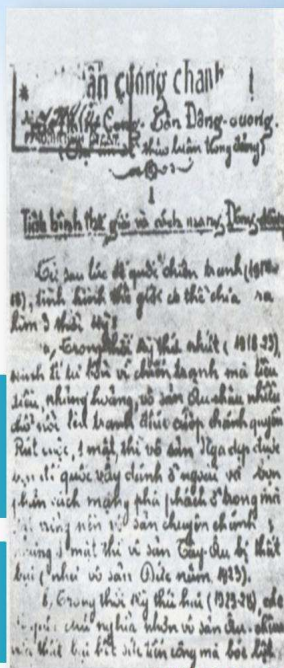 ận cương chánh
Cộng Sản Đông-dương
(thảo luận trong đảng)
I
Tình hình thế giới và cách mạng Đông dương
Từ sau lúc đế quốc chiến tranh (1914-
18), tình hình thế giới có thể chia ra
làm 3 thời kỳ:
a, Trong thời kỳ thứ nhất (1918-23),
kinh tế tư bổn vì chiến tranh mà tiêu
điều, khủng hoảng, vô sản Âu châu nhiều
chỗ nổi lên tranh đấu cướp chánh quyền
Rút cuộc, 1 mặt thì vô sản Nga dẹp được
đế quốc vây đánh ở ngoài và bọn
phản cách mạng phá phách ở trong mà
nên vô sản chuyên chánh;
1 mặt thì vô sản Tây-Âu bị thất
bại (như vô sản Đức năm 1923).
b, Trong thời kỳ thứ hai (1923-28),
chủ nghĩa nhơn vô sản Âu-châu
thất bại bớt sức tấn công mà bóc lột